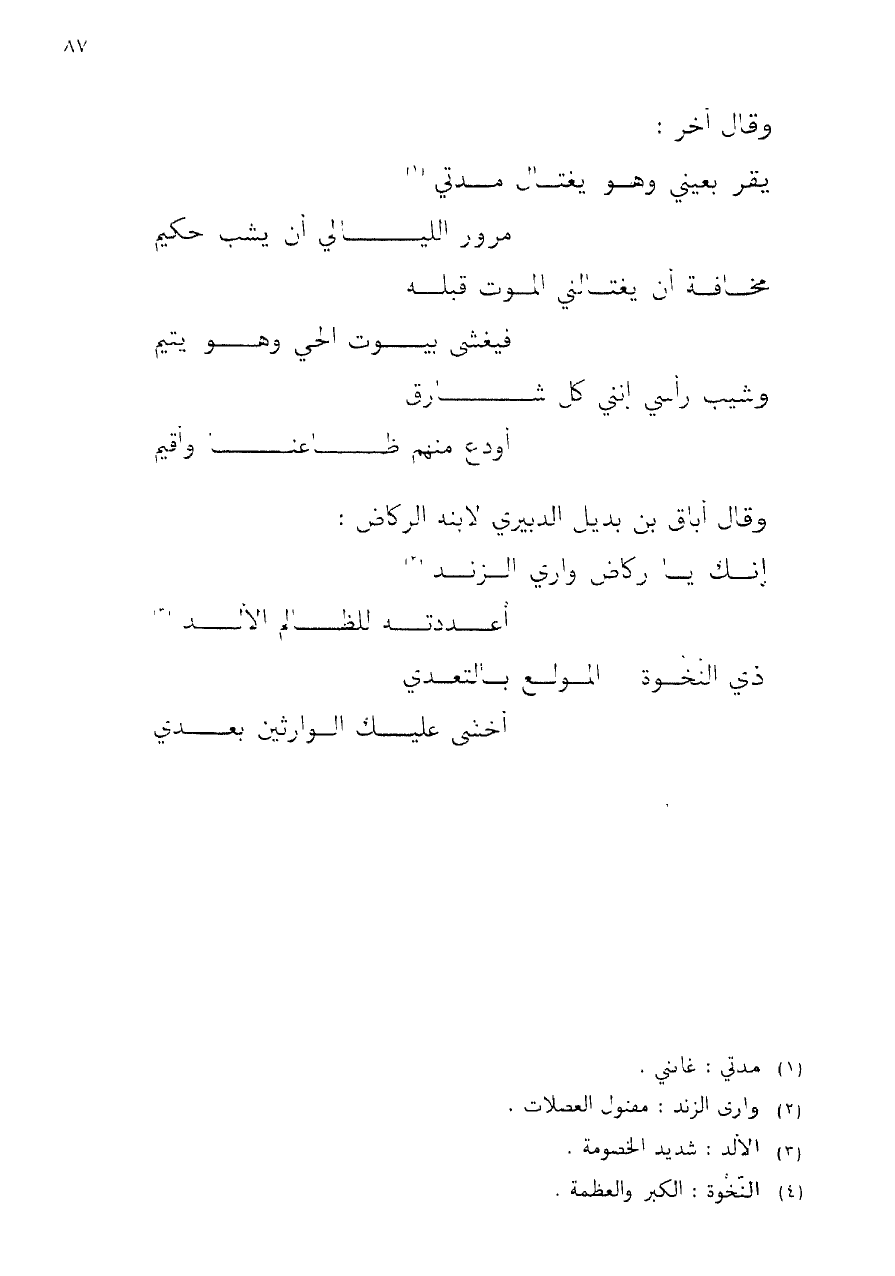 ٨٧
وقال آخر :
يقر بعيني وهو يغتال مدتي (١)
مرور الليالي أن يشب حكيم
مخافة أن يغتالني الموت قبله
فيغشى بيوت الحي وهو يتيم
وشيب رأسي إنني كل شارق
أودع منهم ظاعنا وأقيم
وقال أباق بن بديل الدبيري لابنه الركاض :
إنك يا ركاض واري الزند (٢)
أعددته للظالم الألد (٣)
ذي النخوة المولع بالتعدي
أخشى عليك الوارثين بعدي
(١) مدتي : غايتي .
(٢) وارى الزند : مفتول العضلات .
(٣) الألد : شديد الخصومة .
(٤) النّخوة : الكبر والعظمة .